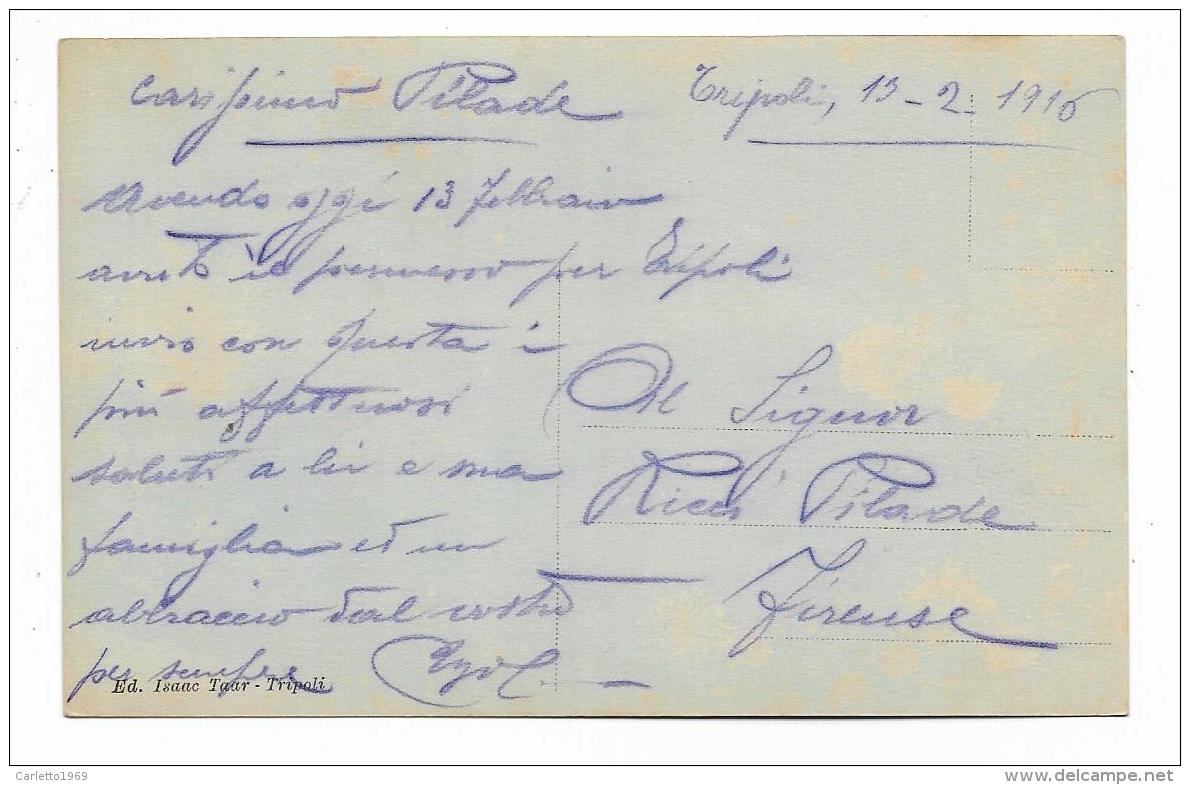 Carissimo Pilade
Tripoli, 13-2-1916
Avendo oggi 13 Febbraio
avuto il permesso per Tripoli
invio con questa i
più affettuosi
saluti a lei e sua
famiglia ed un
abbraccio dal vostro
per sempre
Al Signor
Ricci Pilade
Firense
Ed. Isaac Taar - Tripoli
Carletto1969
delcampe.net